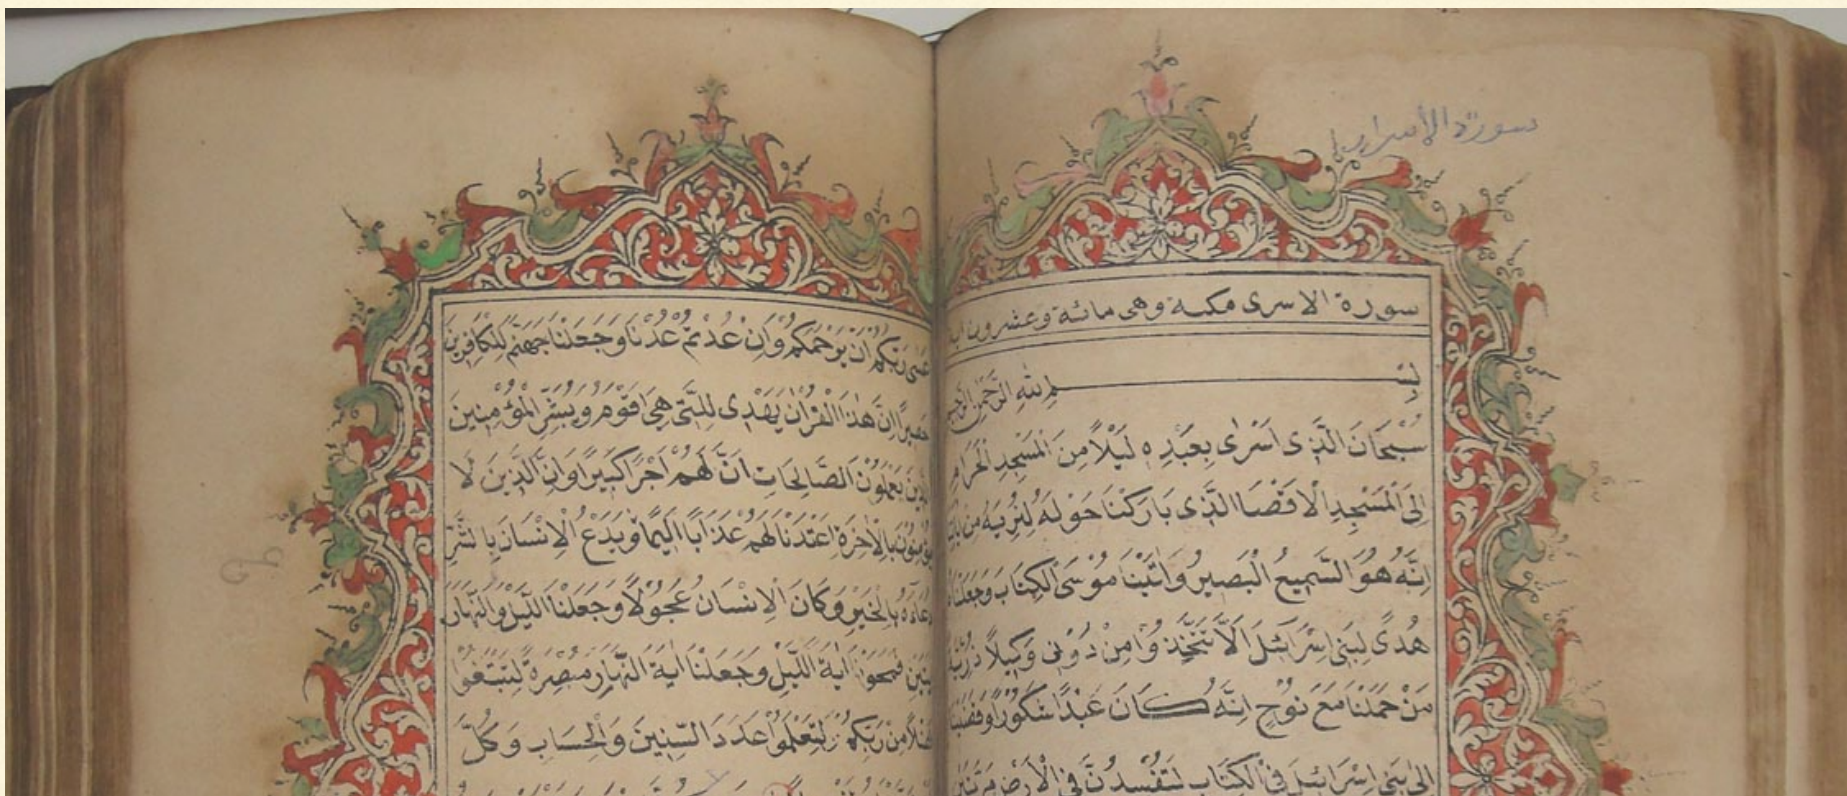 سورة الاسراء
سورة الاسرى مكية وهى مائة وعشرون اية
بِسْمِ اللهِ الرَّحْمَنِ الرَّحِيمِ
سُبْحَانَ الَّذِى اَسْرٰى بِعَبْدِهِ لَيْلًا مِنَ الْمَسْجِدِ الْحَرَامِ
اِلَى الْمَسْجِدِ الْاَقْصَا الَّذِى بَارَكْنَا حَوْلَهُ لِنُرِيَهُ مِنْ
اِنَّهُ هُوَ السَّمِيعُ الْبَصِيرُ وَاٰتَيْنَا مُوْسَى الْكِتَابَ وَجَعَلْنَاهُ
هُدًى لِبَنِى اِسْرَائِلَ اَلَّا تَتَّخِذُوْا مِنْ دُوْنِى وَكِيلًا ذُرِّيَّةَ
مَنْ حَمَلْنَا مَعَ نُوْحٍ اِنَّهُ كَانَ عَبْدًا شَكُوْرًا وَقَضَيْنَا
اِلٰى بَنِى اِسْرَائِلَ فِى الْكِتَابِ لَتُفْسِدُنَّ فِى الْاَرْضِ مَرَّتَيْنِ
عَسٰى رَبُّكُمْ اَنْ يَرْحَمَكُمْ وَاِنْ عُدْتُمْ عُدْنَا وَجَعَلْنَا جَهَنَّمَ لِلْكَافِرِينَ
حَصِيرًا اِنَّ هٰذَا الْقُرْاٰنَ يَهْدِى لِلَّتِى هِىَ اَقْوَمُ وَيُبَشِّرُ الْمُؤْمِنِينَ
الَّذِينَ يَعْمَلُوْنَ الصَّالِحَاتِ اَنَّ لَهُمْ اَجْرًا كَبِيرًا وَاَنَّ الَّذِينَ لَا
يُؤْمِنُوْنَ بِالْاٰخِرَةِ اَعْتَدْنَا لَهُمْ عَذَابًا اَلِيمًا وَيَدْعُ الْاِنْسَانُ بِالشَّرِّ
دُعَاءَهُ بِالْخَيْرِ وَكَانَ الْاِنْسَانُ عَجُوْلًا وَجَعَلْنَا اللَّيْلَ وَالنَّهَارَ
اٰيَتَيْنِ فَمَحَوْنَا اٰيَةَ اللَّيْلِ وَجَعَلْنَا اٰيَةَ النَّهَارِ مُبْصِرَةً لِتَبْتَغُوْا
فَضْلًا مِنْ رَبِّكُمْ وَلِتَعْلَمُوْا عَدَدَ السِّنِينَ وَالْحِسَابَ وَكُلَّ